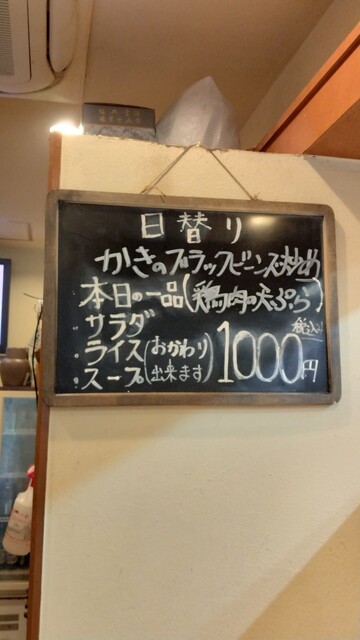 日替り
かきのブラックビーンズ炒め
本日の一品(鶏肉の天ぷら)
サラダ
ライス(おかわり
スープ 出来ます)
1000円
税込み